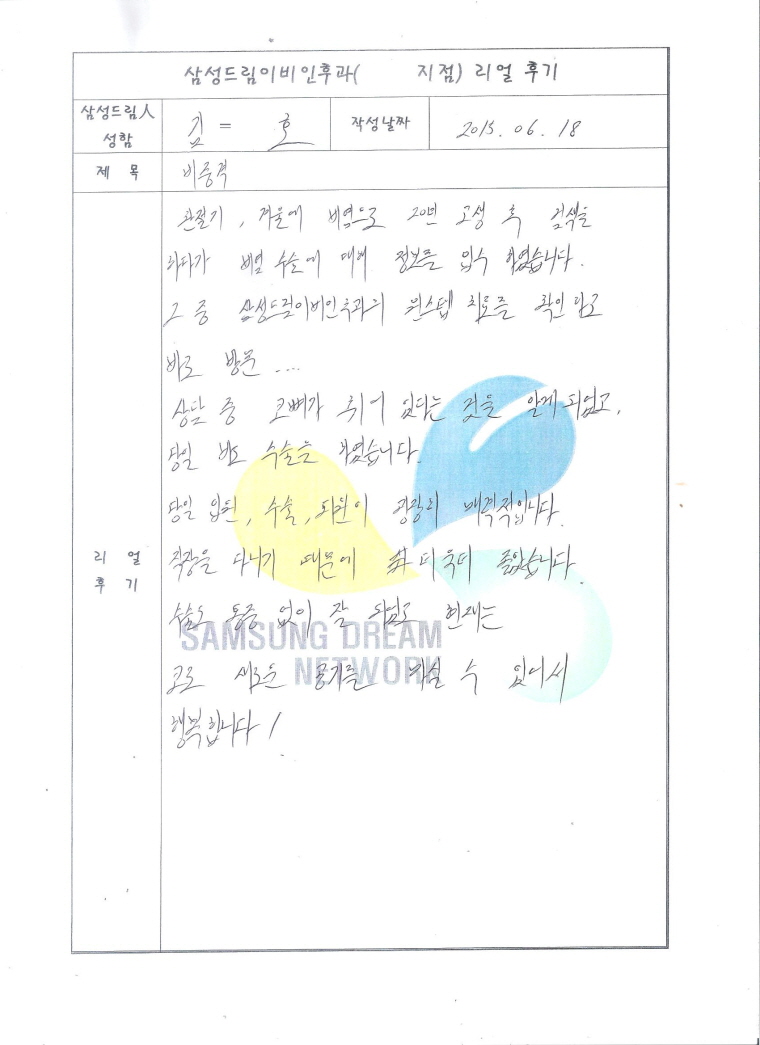 삼성드림이비인후과(       지점) 리얼 후기
삼성드림人 성함 김 = 호 작성날짜 2015. 06. 18
제 목 비중격
환절기, 겨울에 비염으로 20년 고생 후 검색을
하다가 비염 수술에 대해 정보를 입수 하였습니다.
그 중 삼성드림이비인후과의 원스텝 치료를 확인하고
바로 방문 ....
상담 중 코뼈가 휘어 있다는 것을 알게 되었고,
당일 바로 수술을 하였습니다.
당일 입원, 수술, 퇴원이 굉장히 매력적입니다.
리 얼
후 기
직장을 다니기 때문에 더욱더 좋았습니다.
수술도 통증 없이 잘 되었고 현재는
코로 새로운 공기를 마실 수 있어서
행복합니다!
SAMSUNG DREAM
NETWORK